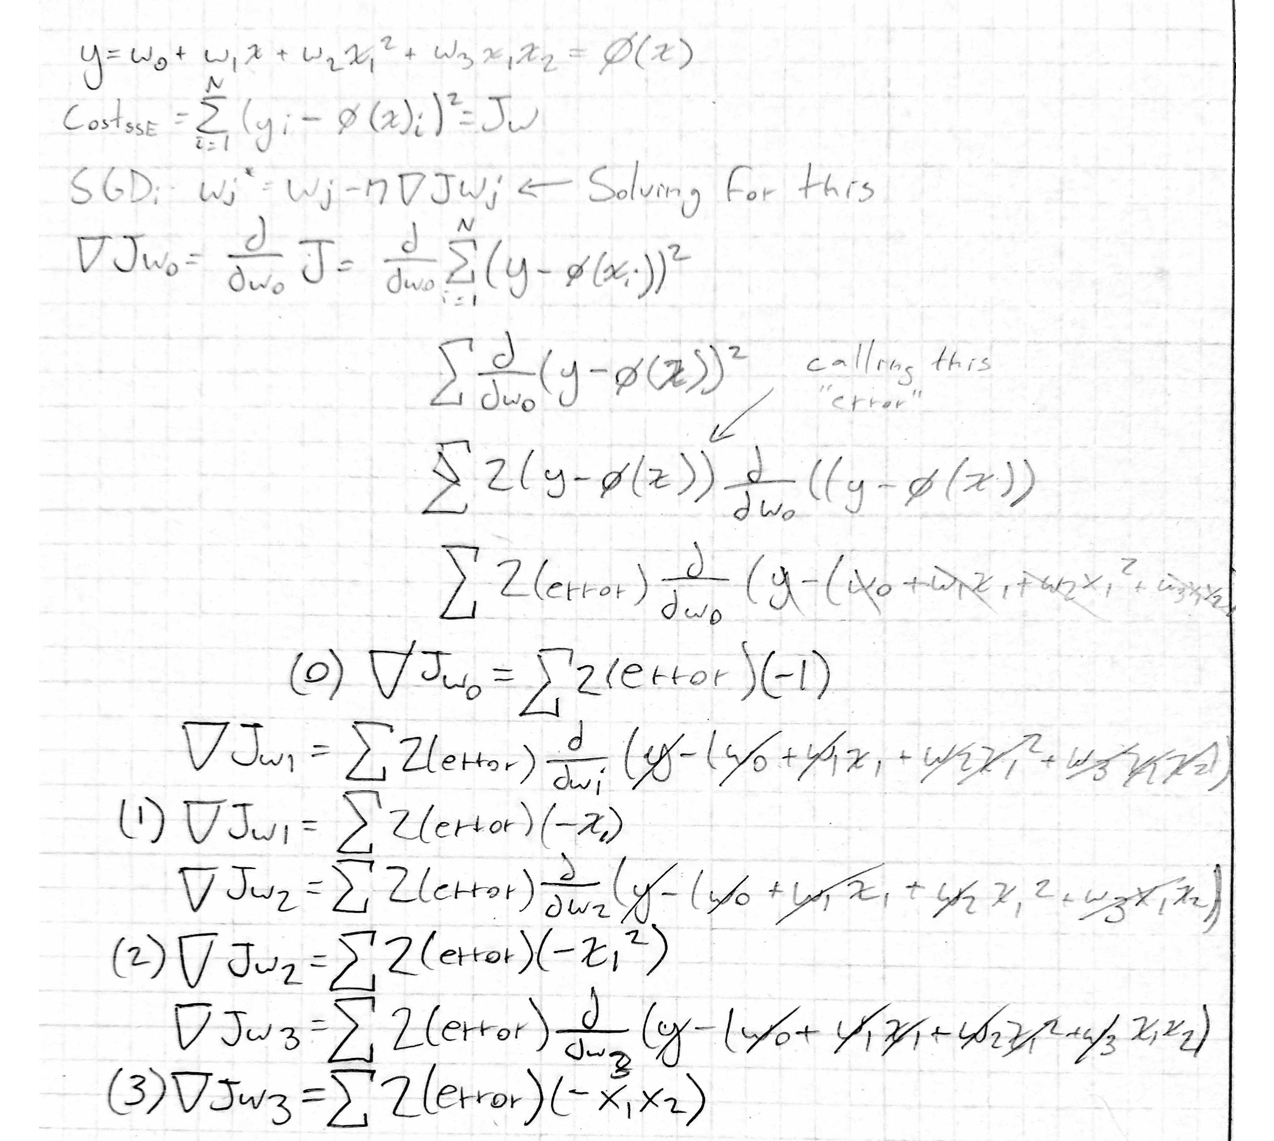 y = w₀ + w₁x + w₂x₁² + w₃x₁x₂ = φ(x)
Cost_SSE = Σ_{i=1}^{N} (yi - φ(x)i)² = Jw
SGD: wj* = wj - η∇Jwj ← Solving for this
∇Jw₀ = d/dw₀ J = d/dw₀ Σ_{i=1}^{N} (y - φ(xi))²
Σ d/dw₀ (y - φ(x))² calling this "error"
Σ 2(y - φ(x)) d/dw₀ ((y - φ(x))
Σ 2(error) d/dw₀ (y - (w₀ + w₁x₁ + w₂x₁² + w₃x₁x₂
(0) ∇Jw₀ = Σ 2(error)(-1)
∇Jw₁ = Σ 2(error) d/dw₁ (y - (w₀ + w₁x₁ + w₂x₁² + w₃x₁x₂)
(1) ∇Jw₁ = Σ 2(error)(-x₁)
∇Jw₂ = Σ 2(error) d/dw₂ (y - (w₀ + w₁x₁ + w₂x₁² + w₃x₁x₂)
(2) ∇Jw₂ = Σ 2(error)(-x₁²)
∇Jw₃ = Σ 2(error) d/dw₃ (y - (w₀ + w₁x₁ + w₂x₁² + w₃x₁x₂)
(3) ∇Jw₃ = Σ 2(error)(-x₁x₂)